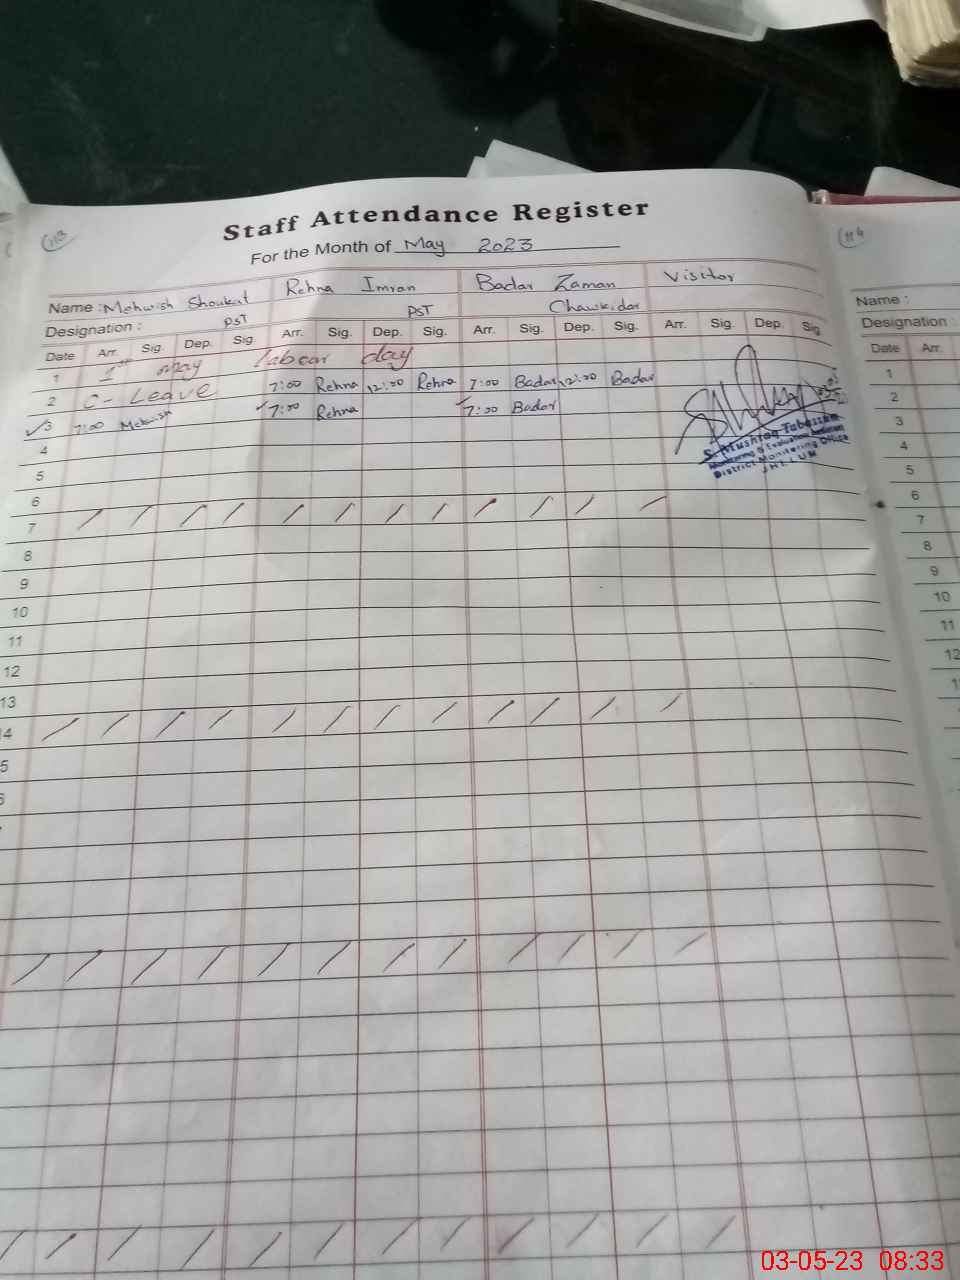 113
Staff Attendance Register
For the Month of May 2023
Name : Mehwish Shoukat Rehna Imran Badar Zaman Visitor
Designation : PST PST Chawkidar
Date Arr. Sig. Dep. Sig. Arr. Sig. Dep. Sig. Arr. Sig. Dep. Sig. Arr. Sig. Dep. Sig
1 1st May labour day
2 C- Leave 7:00 Rehna 12:00 Rehna 7:00 Badar 12:00 Badar
3 7:00 Mehwish 7:00 Rehna 7:00 Badar
S. Mushtaq Tabassam
Monitoring & Evaluation
District Monitoring Office
JHELUM
4
5
6
7
8
9
10
11
12
13
4
5
114
Name :
Designation :
Date Arr.
1
2
3
4
5
6
7
8
9
10
11
12
03-05-23 08:33